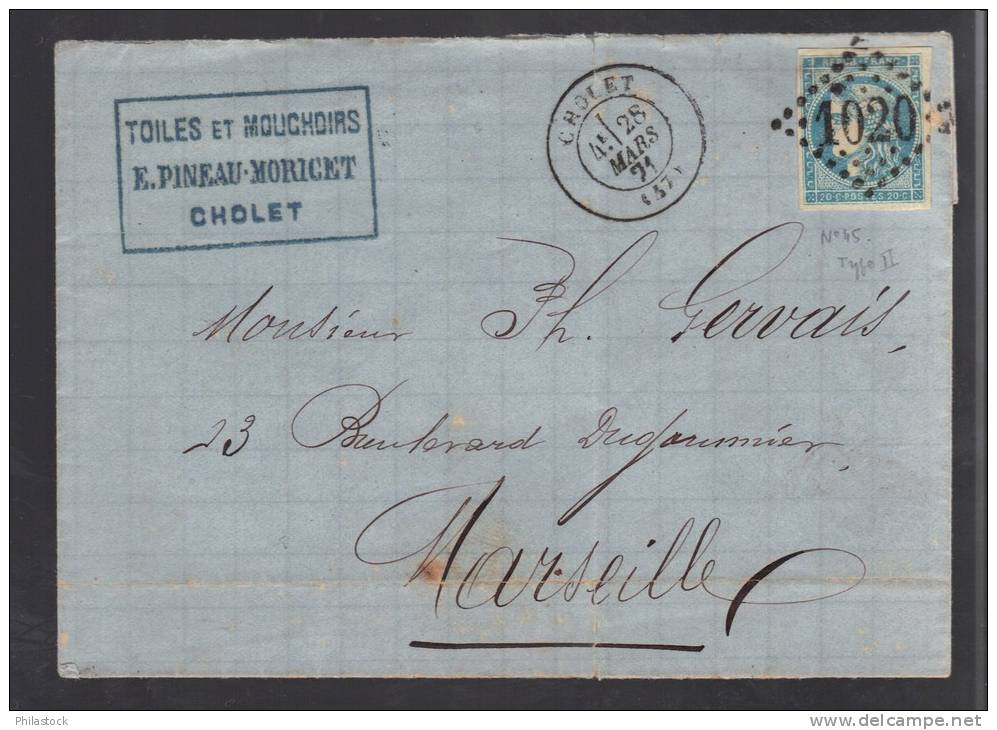 TOILES ET MOUCHOIRS
E. PINEAU-MORICET
CHOLET
CHOLET
28
MARS
71
1020
20·C·POSTES·20·C
N° 45.
Type II
Monsieur Ph. Gervais,
23 Boulevard Dugommier,
Marseille
Philastock
www.delcampe.net